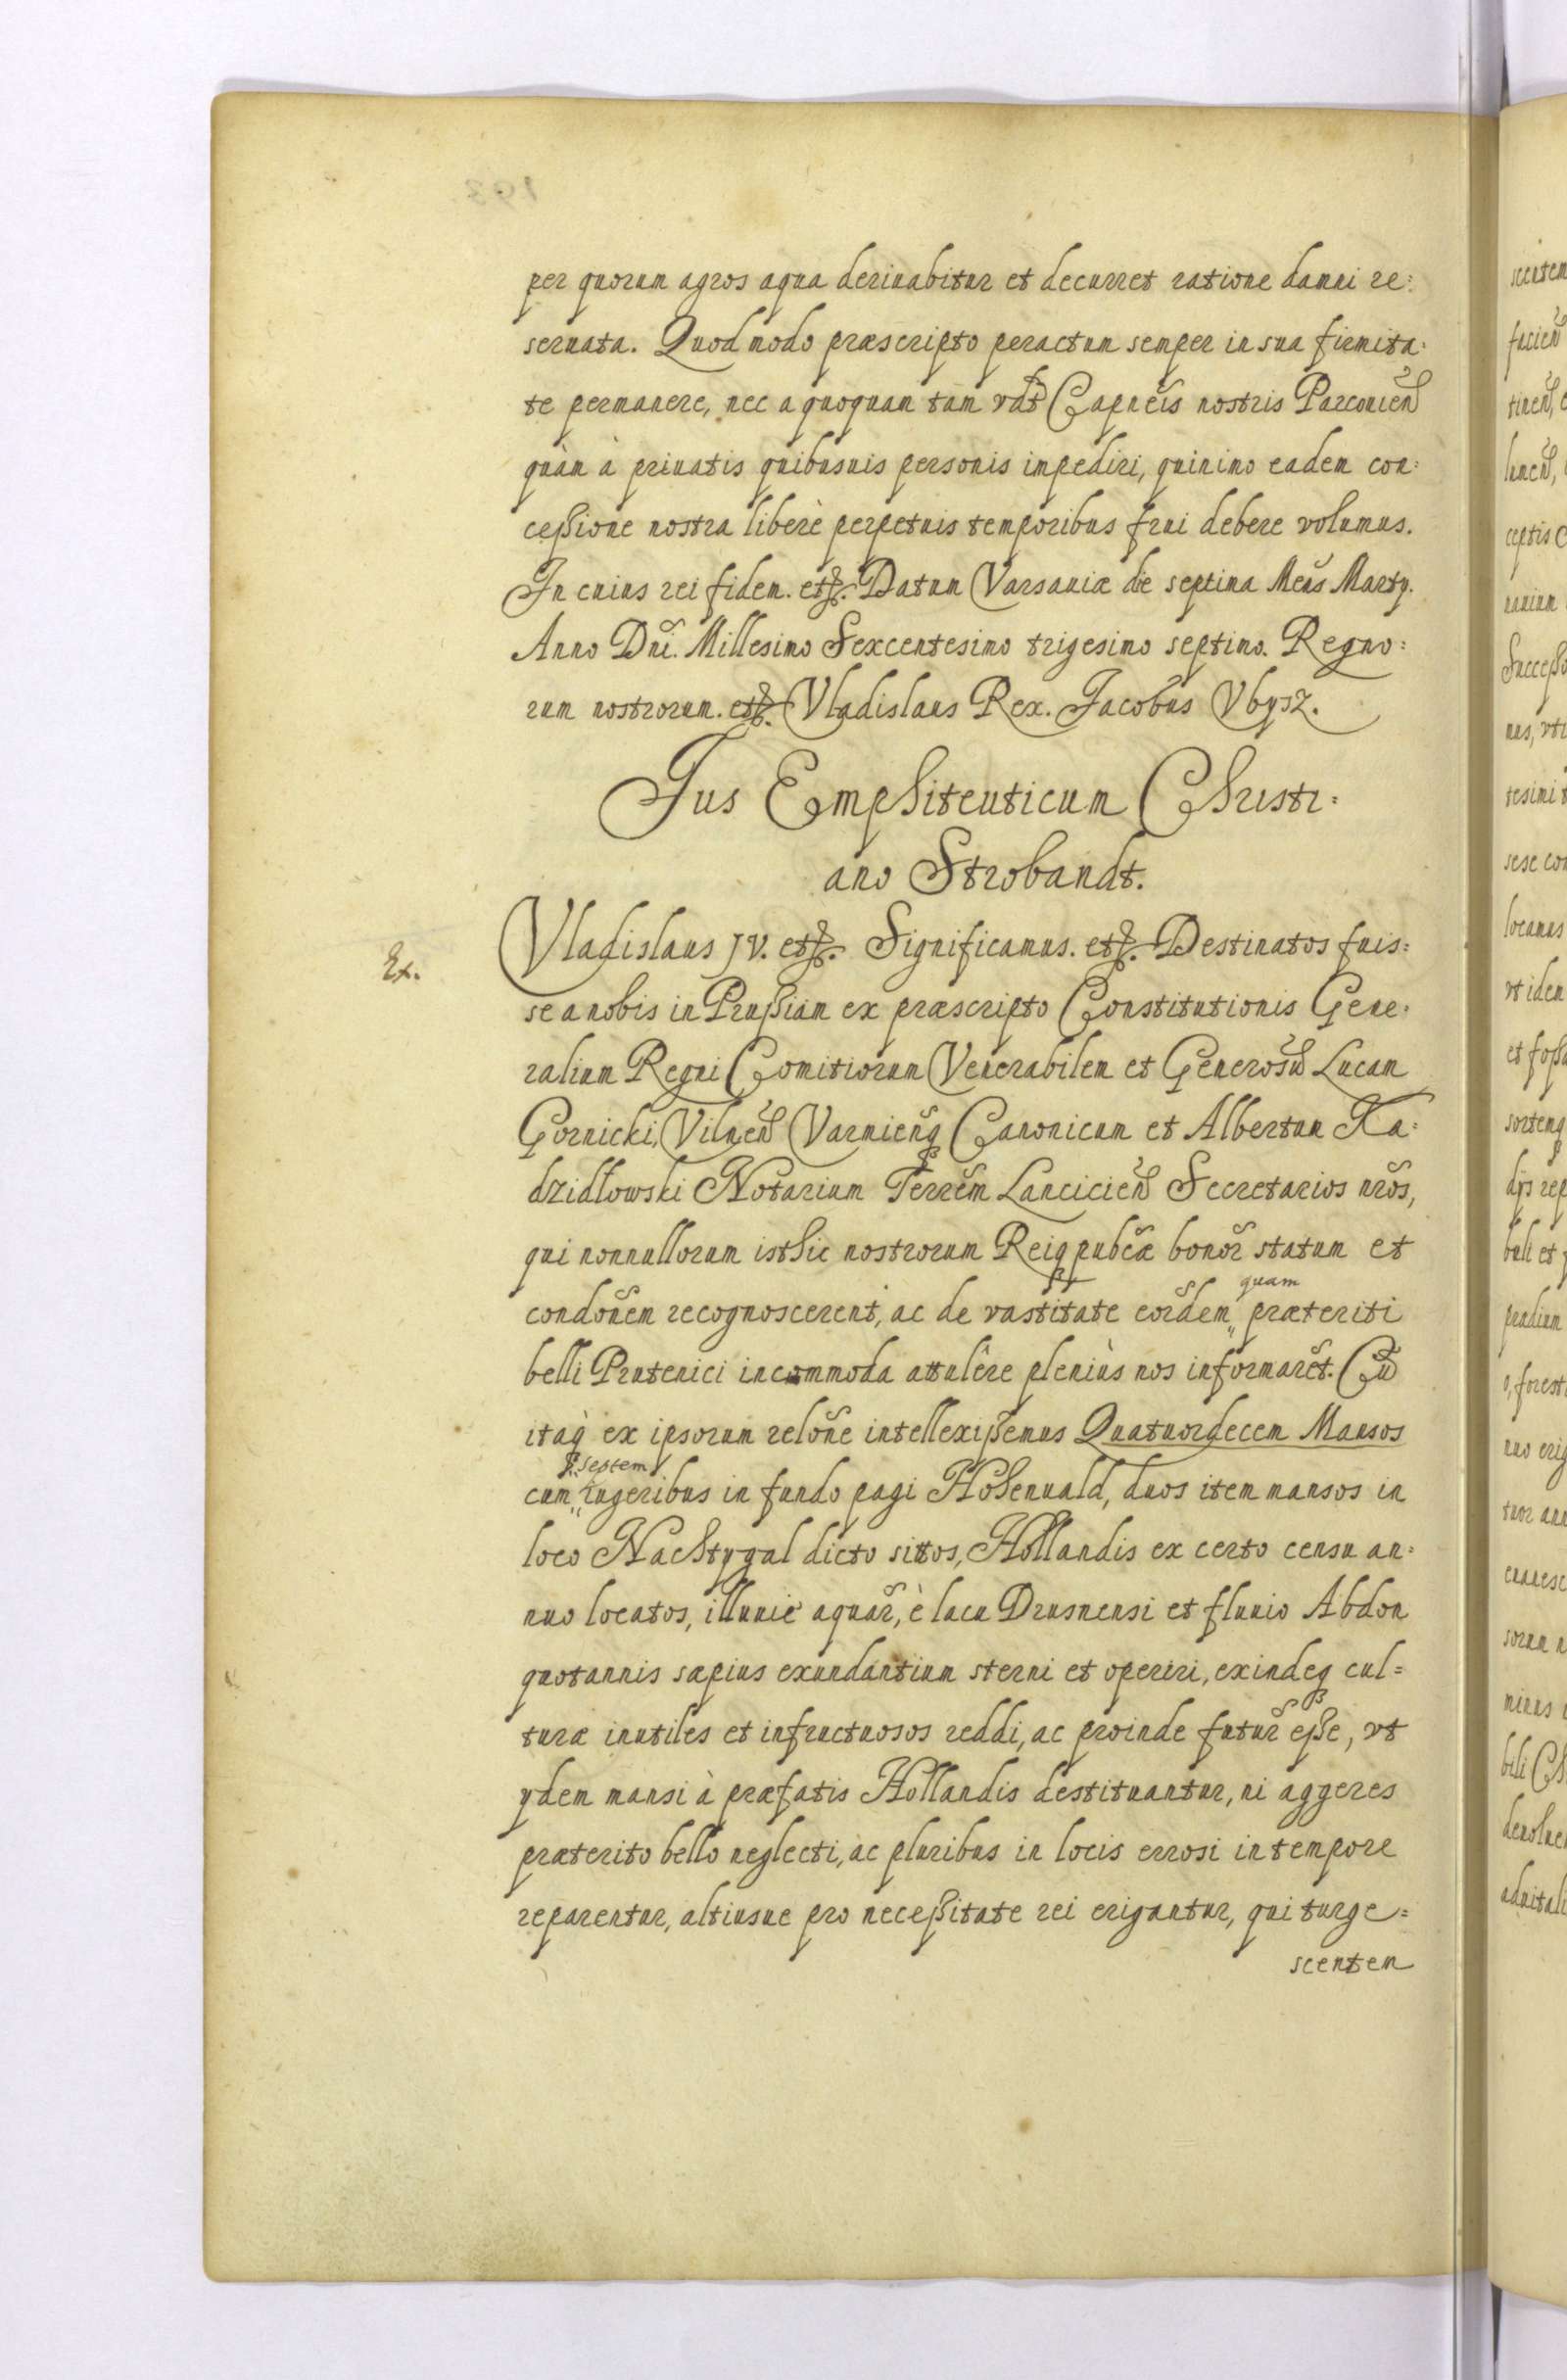 per quorum agros aqua deriuabitur et decurret ratione damni re:
seruata. Quod modo præscripto peractum semper in sua firmita:
te permanere, nec a quoquam tam vdt Capneis nostris Parcouien
quàm à priuatis quibusuis personis impediri, quinimo eadem con:
ceßione nostra liberè perpetuis temporibus frui debere volumus.
In cuius rei fidem. etc. Datum Varsauiæ die septima Mens Martÿ.
Anno Dni. Millesimo Sexcentesimo trigesimo septimo. Regno:
rum nostrorum. etc. Vladislaus Rex. Jacobus Vbysz.
Jus Emphiteuticum Christi:
ano Strobandt.
Ex.
Vladislaus IV. etc. Significamus. etc. Destinatos fuis:
se a nobis in Prußiam ex præscripto Constitutionis Gene:
ralium Regni Comitiorum Venerabilem et Generosu Lucam
Gornicki, Vilnen Varmienq Canonicum et Albertum Ka:
dzidłowski Notarium Terrem Lancicien Secretarios nros,
qui nonnullorum isthic nostrorum Reiq pubcæ bonor statum et
condonem recognoscerent, ac de vastitate eordem quam præteriti
belli Prutenici incommoda attulêre pleniùs nos informaret. Cu
itaq ex ipsorum relone intellexißemus Quatuordecem Mansos
cum septem iugeribus in fundo pagi Hohenuald, duos item mansos in
loco Nachtygal dicto sittos, Hollandis ex certo censu an:
nuo locatos, illuuie aquar, è lacu Drusnensi et fluuio Abdon
quotannis sæpius exundantium sterni et operiri, exindeq cul=
turæ inutiles et infructuosos reddi, ac proinde futur eße, vt
ydem mansi à præfatis Hollandis destituantur, ni aggeres
præterito bello neglecti, ac pluribus in locis errosi in tempore
reparentur, altiusue pro neceßitate rei erigantur, qui turge=
scentem